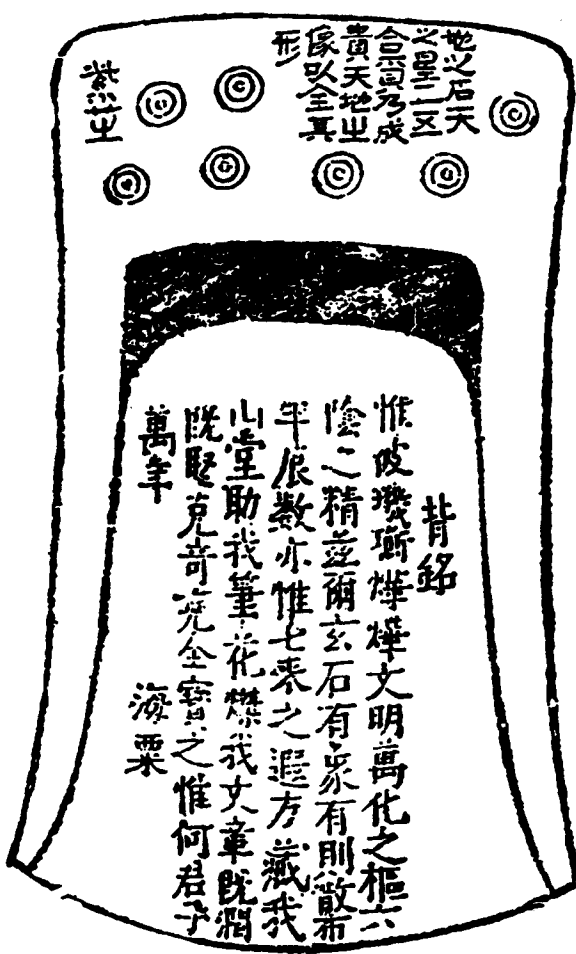 地之石天
之星二五
合乃成
貴天地之
像以全真
形
紫芝
背銘
惟彼璣衡燁燁文明萬化之樞六
陰之精茲爾玄石有象有則散布
乎辰數亦惟七來之遐方藏我
山堂助我筆花燦我文章既潤
既堅克奇克全寶之惟何君子
萬年
海粟